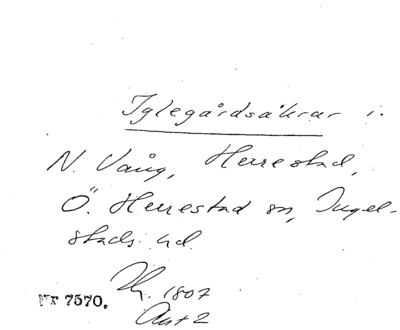 Iglegårdsåkrar i.
N. Vång, Herrestad,
Ö. Herrestad sn, Ingel-
stads hd.
Nr 7570.
1807
Akt 2